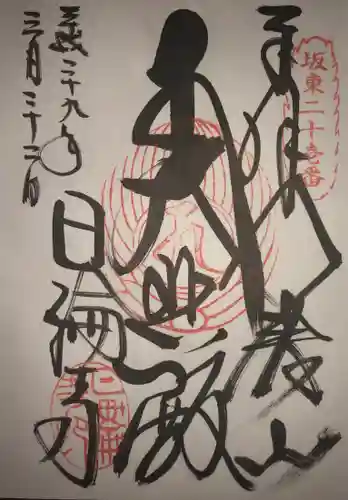 坂東二十壱番
奉拝
八溝山
大悲殿
平成二十九年
三月二十二日
日輪寺